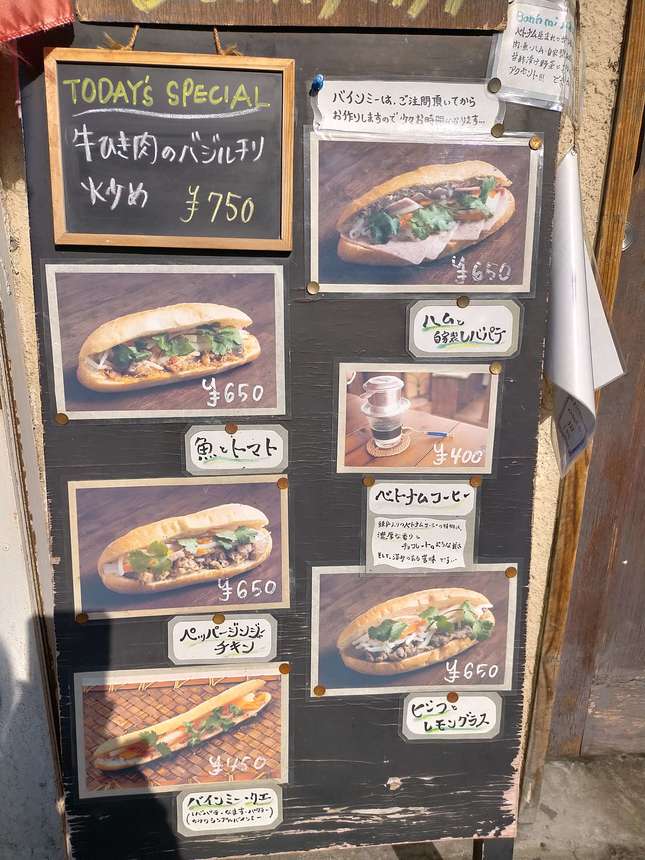 TODAY's SPECIAL
牛ひき肉のバジルチリ
炒め
¥750
バインミーは、ご注問頂いてから
お作りしますので少々お時間かかります…
¥650
ハムと
自家製レバパテ
¥650
魚とトマト
¥400
ベトナムコーヒー
濃厚な香りと
¥650
ペッパージンジャー
チキン
¥650
ビーフと
レモングラス
¥450
バインミー・クエ